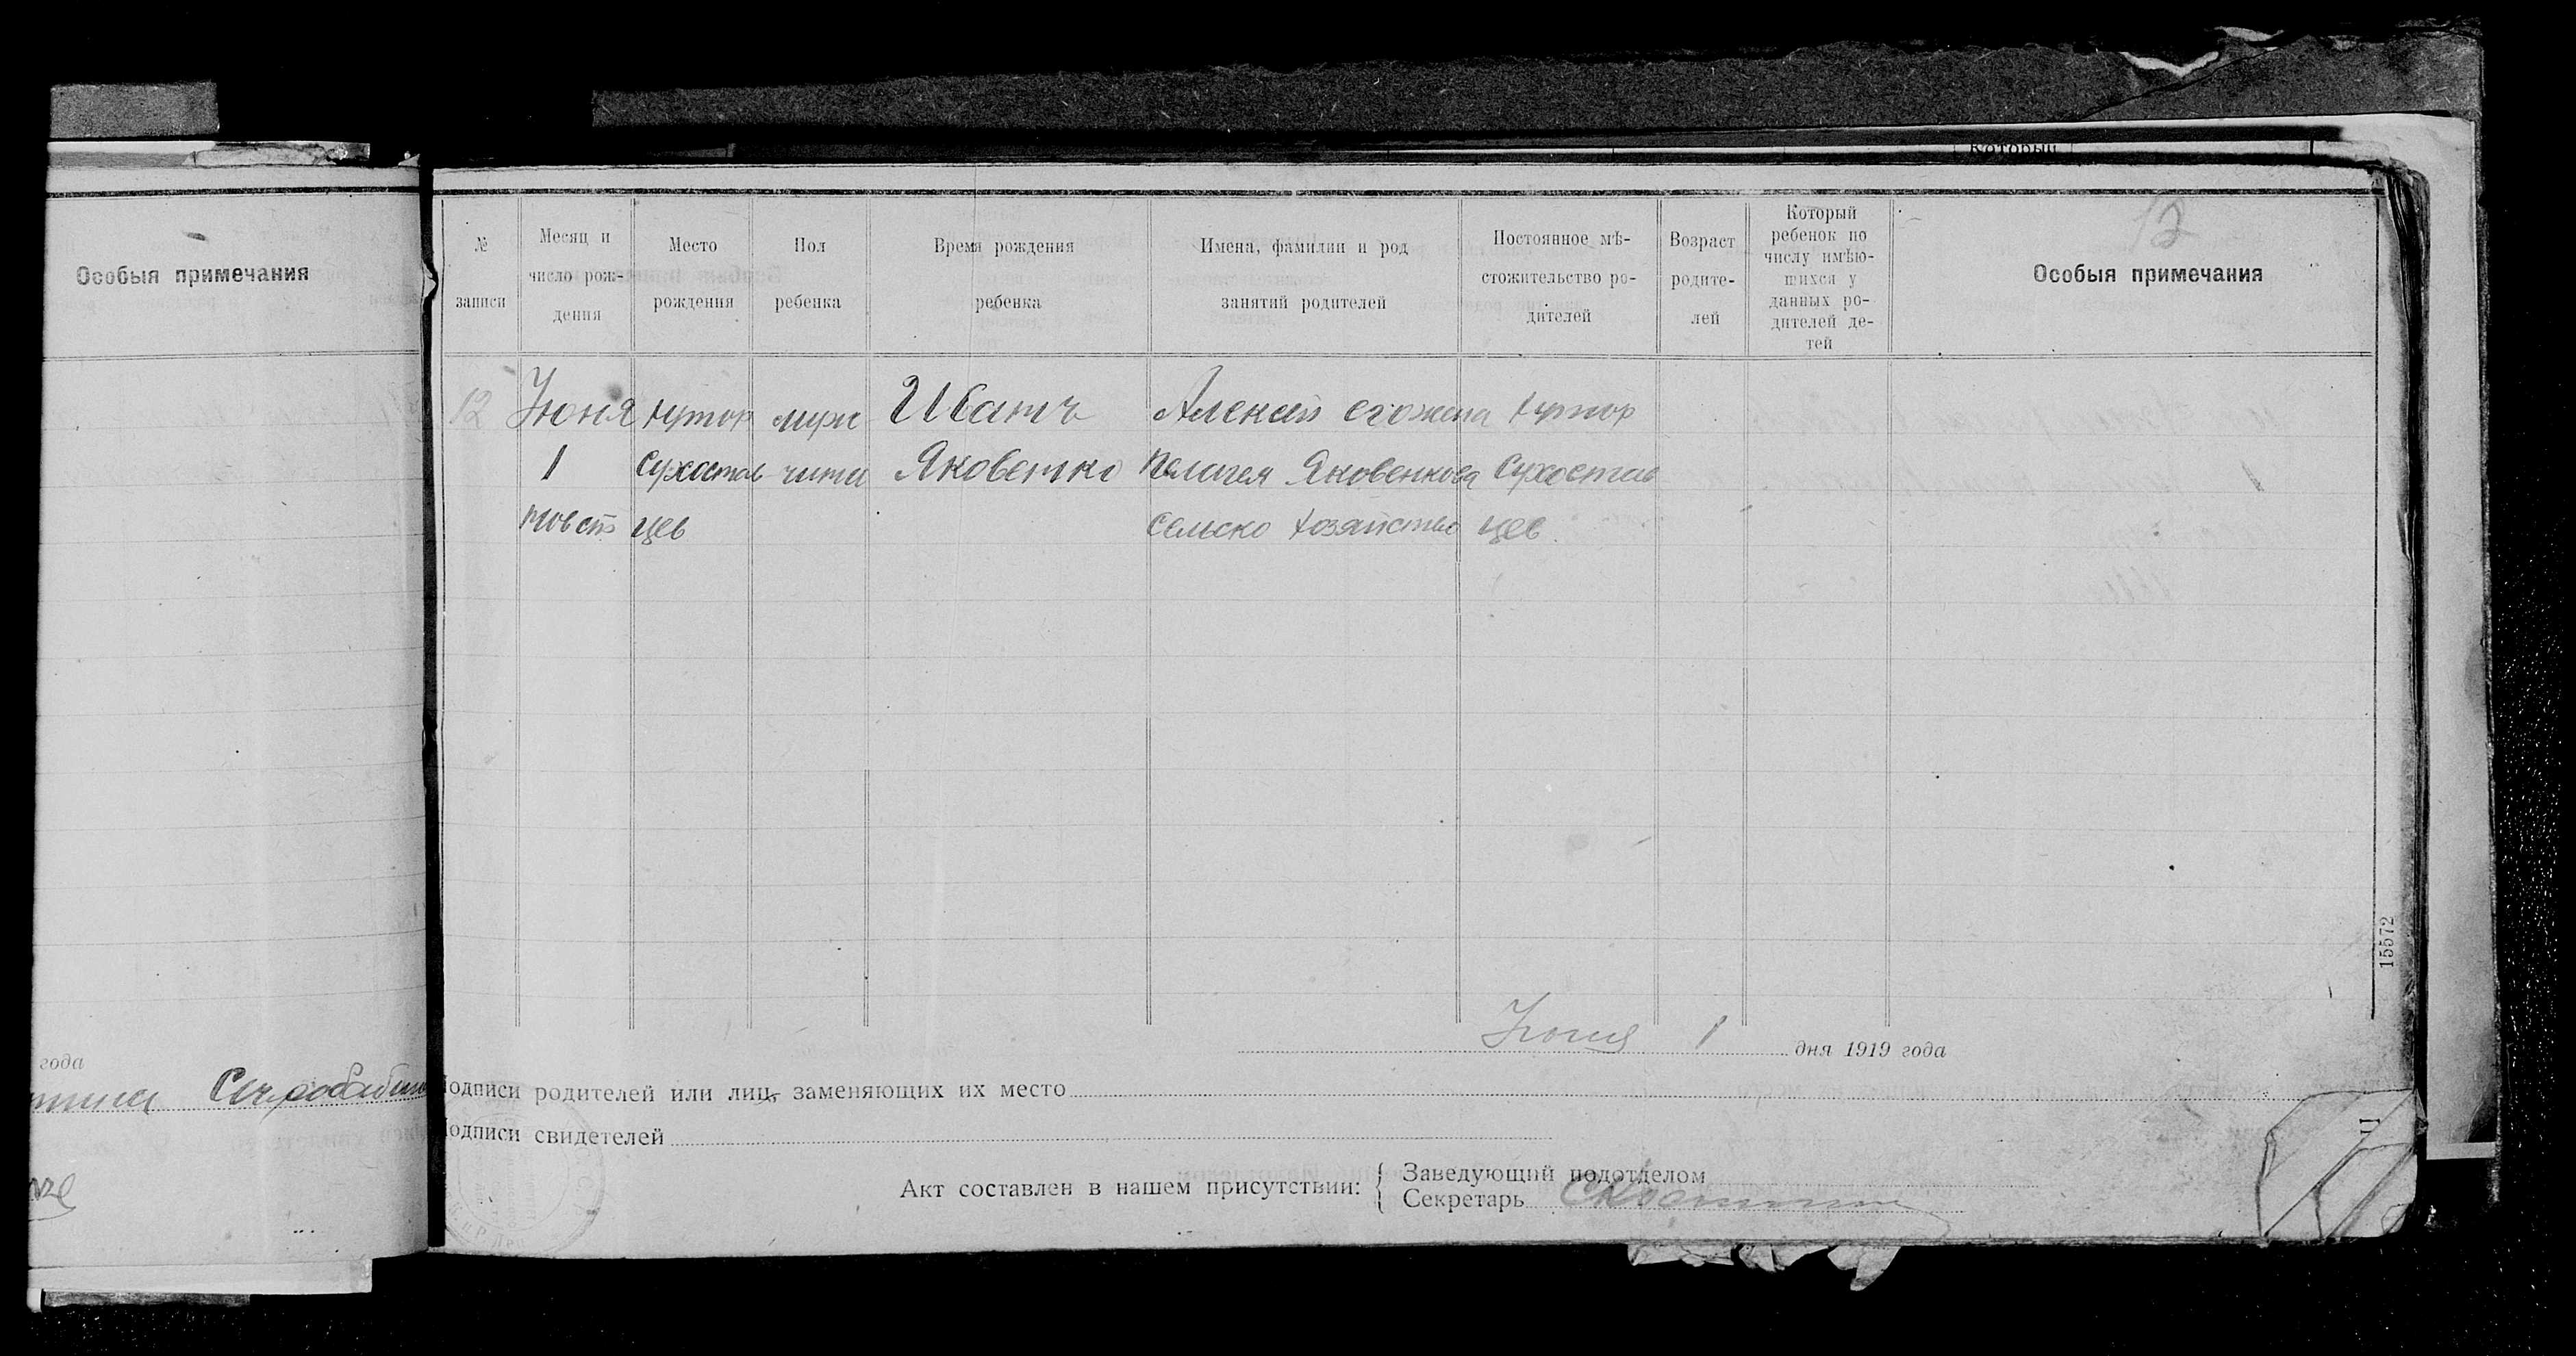 Который
Особыя примечания
года
№
записи
Месяц и
число рож-
дения
Место
рождения
Пол
ребенка
Время рождения
ребенка
Имена, фамилии и род
занятий родителей
Постоянное мѣ-
стожительство ро-
дителей
Возраст
родите-
лей
Который
ребенок по
числу имѣю-
щихся у
данных ро-
дителей де-
тей
Особыя примечания
12
12
Июня
1
хутор
Сухостав
цев
мущи
чина
Иванъ
Яковенко
Алексей его жена
Пелагея Яковенкова
Сельско хозяйство
хутор
Сухостав
цев
Июня 1 дня 1919 года
Подписи родителей или лиц, заменяющих их место
Подписи свидетелей
Акт составлен в нашем присутствии:
Заведующий подотделом
Секретарь
15572